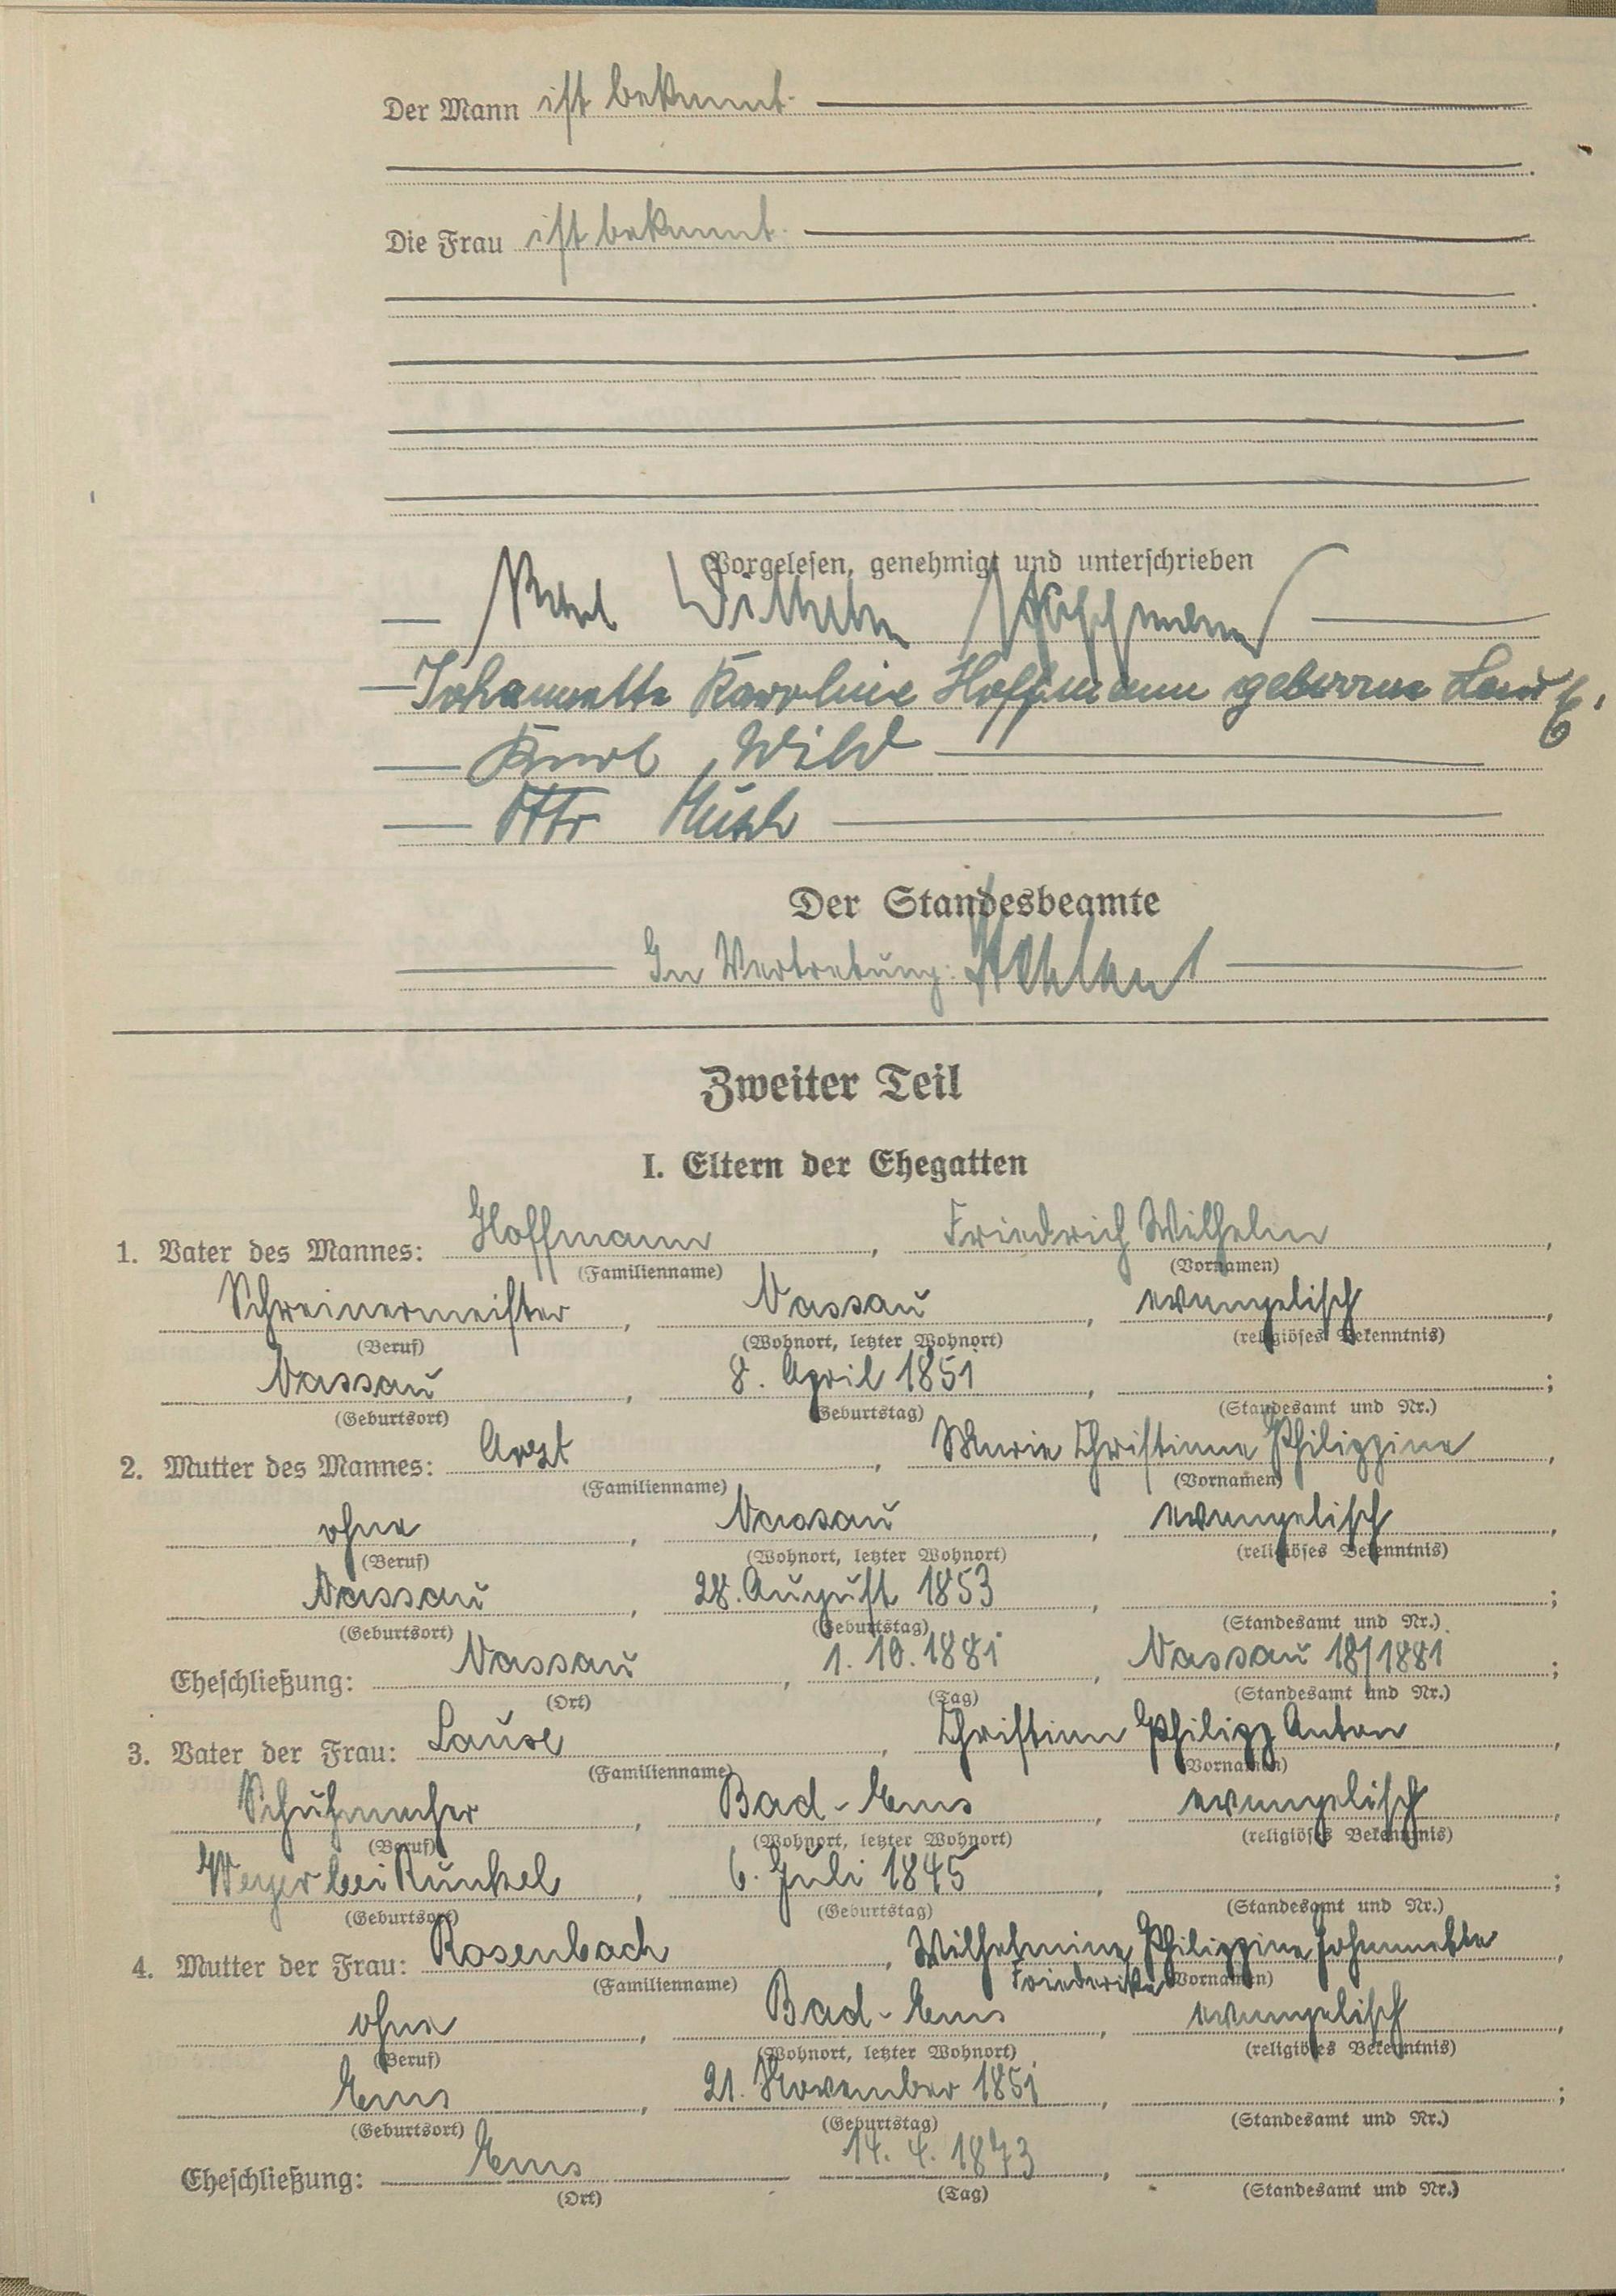 Der Mann ist bekannt.
Die Frau ist bekannt.
Vorgelesen, genehmigt und unterschrieben
Wilhelm Hoffmann
Johannette Karoline Hoffmann geborene Lause
Karl Wild
Otto
Der Standesbeamte
In Vertretung:
Zweiter Teil
I. Eltern der Ehegatten
1. Vater des Mannes: Hoffmann, Friedrich Wilhelm,
(Familienname) (Vornamen)
Schreinermeister, Nassau, evangelisch,
(Beruf) (Wohnort, letzter Wohnort) (religiöses Bekenntnis)
Nassau, 8. April 1851, ;
(Geburtsort) (Geburtstag) (Standesamt und Nr.)
2. Mutter des Mannes: Arzt, Marie Christiane Philippine,
(Familienname) (Vornamen)
ohne, Nassau, evangelisch,
(Beruf) (Wohnort, letzter Wohnort) (religiöses Bekenntnis)
Nassau, 28. August 1853, ;
(Geburtsort) (Geburtstag) (Standesamt und Nr.)
Eheschließung: Nassau, 1. 10. 1881, Nassau 18/1881;
(Ort) (Tag) (Standesamt und Nr.)
3. Vater der Frau: Lause, Christian Philipp Anton,
(Familienname) (Vornamen)
Schuhmacher, Bad-Ems, evangelisch,
(Beruf) (Wohnort, letzter Wohnort) (religiöses Bekenntnis)
Weyer bei Runkel, 6. Juli 1845, ;
(Geburtsort) (Geburtstag) (Standesamt und Nr.)
4. Mutter der Frau: Rosenbach, Wilhelmine Philippine Johannette
Friederike,
(Familienname) (Vornamen)
ohne, Bad-Ems, evangelisch,
(Beruf) (Wohnort, letzter Wohnort) (religiöses Bekenntnis)
Ems, 21. November 1851, ;
(Geburtsort) (Geburtstag) (Standesamt und Nr.)
Eheschließung: Ems 14. 4. 1873,
(Ort) (Tag) (Standesamt und Nr.)